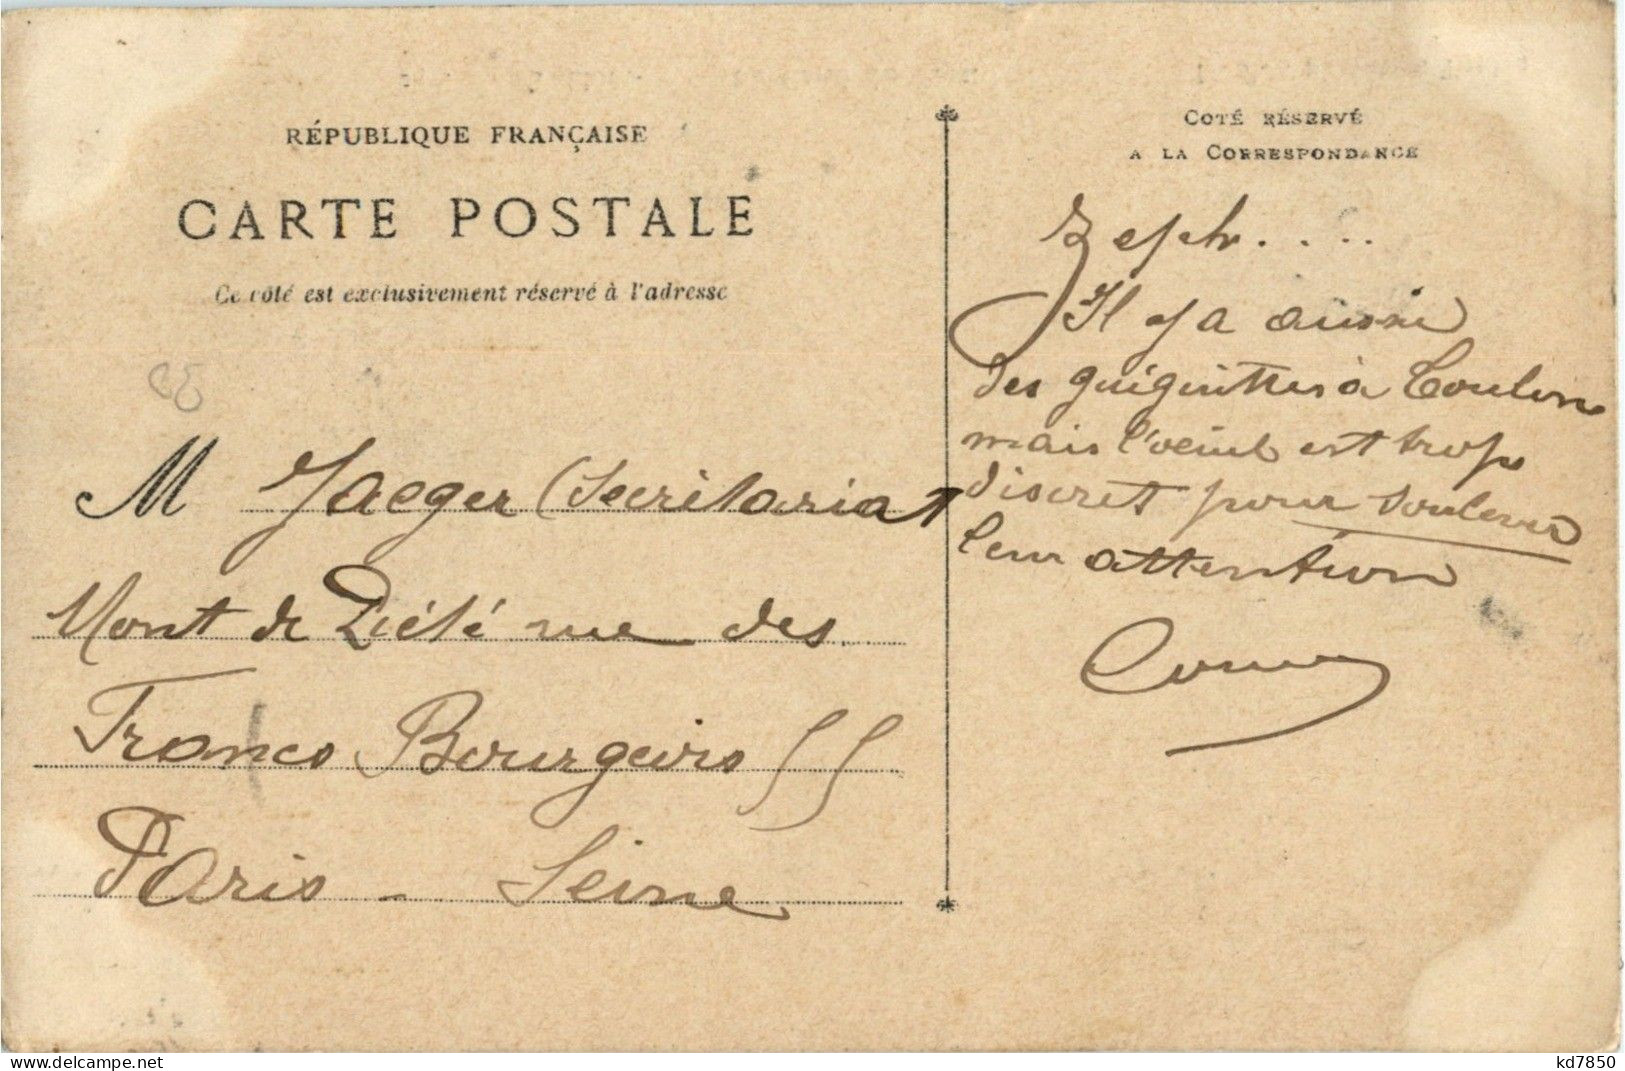 RÉPUBLIQUE FRANÇAISE
CARTE POSTALE
Ce côté est exclusivement réservé à l'adresse
M Jaeger (Secrétariat
Mont de Piété rue des
Francs Bourgeois 55
Paris - Seine
COTÉ RÉSERVÉ
A LA CORRESPONDANCE
Zeph....
Il y a aussi
des à Toulon
mais l' est trop
discret pour soulever
leur attention
delcampe.net
kd7850